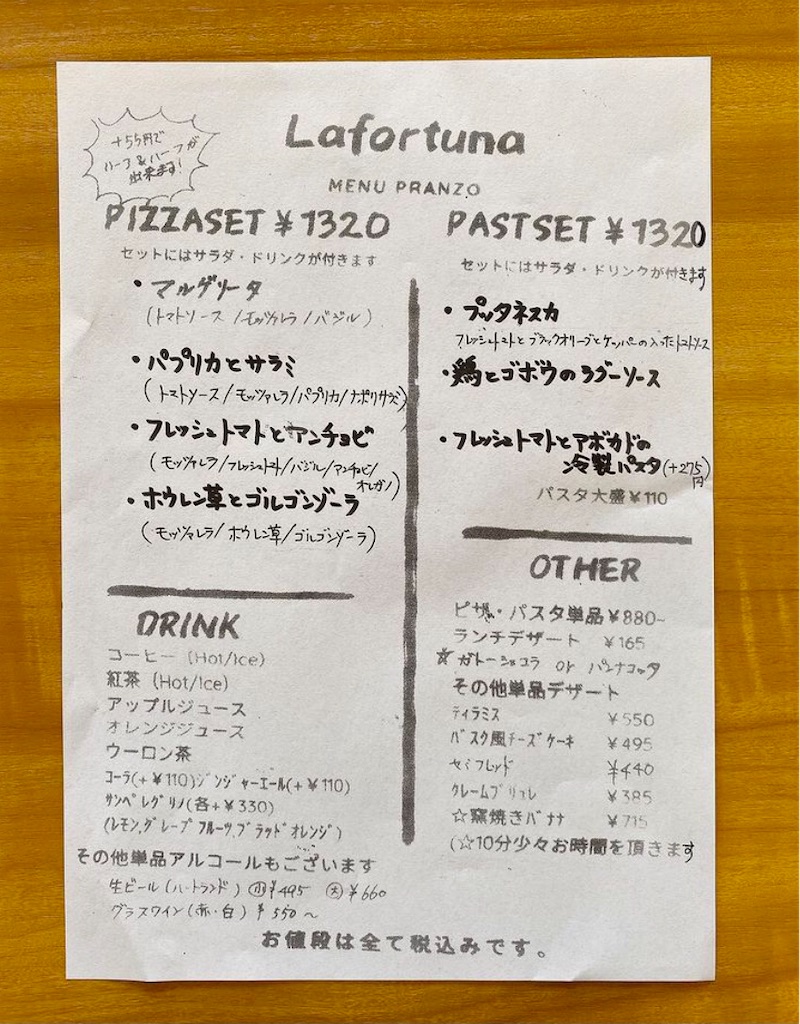 +55円で
ハーフ&ハーフが
出来ます!
Lafortuna
MENU PRANZO
PIZZASET ¥1320
セットにはサラダ・ドリンクが付きます
・マルゲリータ
(トマトソース/モッツァレラ/バジル)
・パプリカとサラミ
(トマトソース/モッツァレラ/パプリカ/ナポリサラミ)
・フレッシュトマトとアンチョビ
(モッツァレラ/フレッシュトマト/バジル/アンチョビ/
オレガノ)
・ホウレン草とゴルゴンゾーラ
(モッツァレラ/ホウレン草/ゴルゴンゾーラ)
DRINK
コーヒー (Hot/Ice)
紅茶 (Hot/Ice)
アップルジュース
オレンジジュース
ウーロン茶
コーラ(+¥110)ジンジャーエール(+¥110)
サンペレグリノ(各+¥330)
(レモン,グレープフルーツ,ブラッドオレンジ)
その他単品アルコールもございます
生ビール(ハートランド) 小¥495 大¥660
グラスワイン(赤・白) ¥550〜
PASTSET ¥1320
セットにはサラダ・ドリンクが付きます
・プッタネスカ
フレッシュトマトとブラックオリーブとケッパーの入ったトマトソース
・鶏とゴボウのラグーソース
・フレッシュトマトとアボカドの
冷製パスタ(+275
円)
パスタ大盛¥110
OTHER
ピザ・パスタ単品¥880~
ランチデザート ¥165
☆ガトーショコラ or パンナコッタ
その他単品デザート
ティラミス ¥550
バスク風チーズケーキ ¥495
セミフレッド ¥440
クレームブリュレ ¥385
☆窯焼きバナナ ¥715
(☆10分少々お時間を頂きます
お値段は全て税込みです。